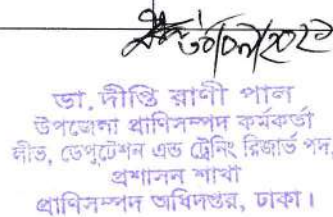 ৩০/০৮/২০২১
ডা. দীপ্তি রাণী পাল
উপজেলা প্রাণিসম্পদ কর্মকর্তা
লীভ, ডেপুটেশন এন্ড ট্রেনিং রিজার্ভ পদ,
প্রশাসন শাখা
প্রাণিসম্পদ অধিদপ্তর, ঢাকা।